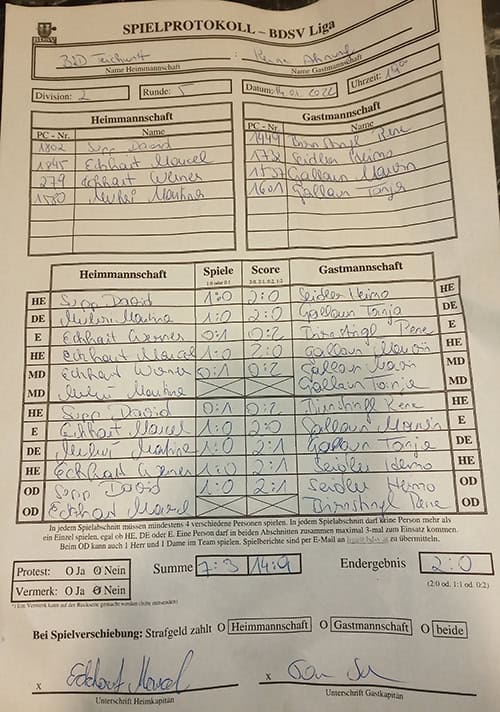 BDSV
SPIELPROTOKOLL – BDSV Liga
Name Heimmannschaft Name Gastmannschaft
Division: 2 Runde: 5 Datum: 14.01.2022 Uhrzeit: 19
Heimmannschaft Gastmannschaft
PC - Nr. Name PC - Nr. Name
1802 Supp David 1449 Birnstingl Rene
1845 Eckhart Marcel 1738 Seidler Heimo
279 Eckhart Werner 1537 Gallaun Marvin
1580 Martina 1601 Gallaun Tanja
Heimmannschaft Spiele Score Gastmannschaft
1:0 oder 0:1 2:0, 2:1, 0:2, 1:2
HE Supp David 1:0 2:0 Seidler Heimo HE
DE Martina 1:0 2:0 Gallaun Tanja DE
E Eckhart Werner 0:1 0:2 Birnstingl Rene E
HE Eckhart Marcel 1:0 2:0 Gallaun Marvin HE
MD Eckhart Werner 0:1 0:2 Gallaun Marvin MD
MD Martina Gallaun Tanja MD
HE Supp David 0:1 0:2 Birnstingl Rene HE
E Eckhart Marcel 1:0 2:0 Gallaun Marvin E
DE Martina 1:0 2:1 Gallaun Tanja DE
HE Eckhart Werner 1:0 2:1 Seidler Heimo HE
OD Supp David 1:0 2:1 Seidler Heimo OD
OD Eckhart Marcel Birnstingl Rene OD
In jedem Spielabschnitt müssen mindestens 4 verschiedene Personen spielen. In jedem Spielabschnitt darf keine Person mehr als
ein Einzel spielen, egal ob HE, DE oder E. Eine Person darf in beiden Abschnitten zusammen maximal 3-mal zum Einsatz kommen.
Beim OD kann auch 1 Herr und 1 Dame im Team spielen. Spielberichte sind per E-Mail an liga@bdsv.at zu übermitteln.
Protest: O Ja O Nein Summe 7:3 14:9 Endergebnis 2:0
Vermerk: O Ja O Nein (2:0 od. 1:1 od. 0:2)
*) Ein Vermerk kann auf der Rückseite gemacht werden (bitte mitsenden)
Bei Spielverschiebung: Strafgeld zahlt O Heimmannschaft O Gastmannschaft O beide
x Eckhart Marcel x
Unterschrift Heimkapitän Unterschrift Gastkapitän